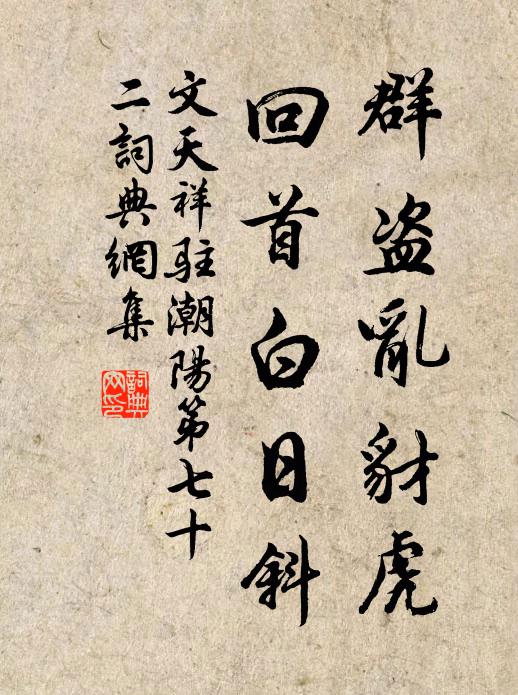 群盗亂豺虎
回首白日斜
文天祥駐潮陽第七十
二詞典網集
詞典
网印